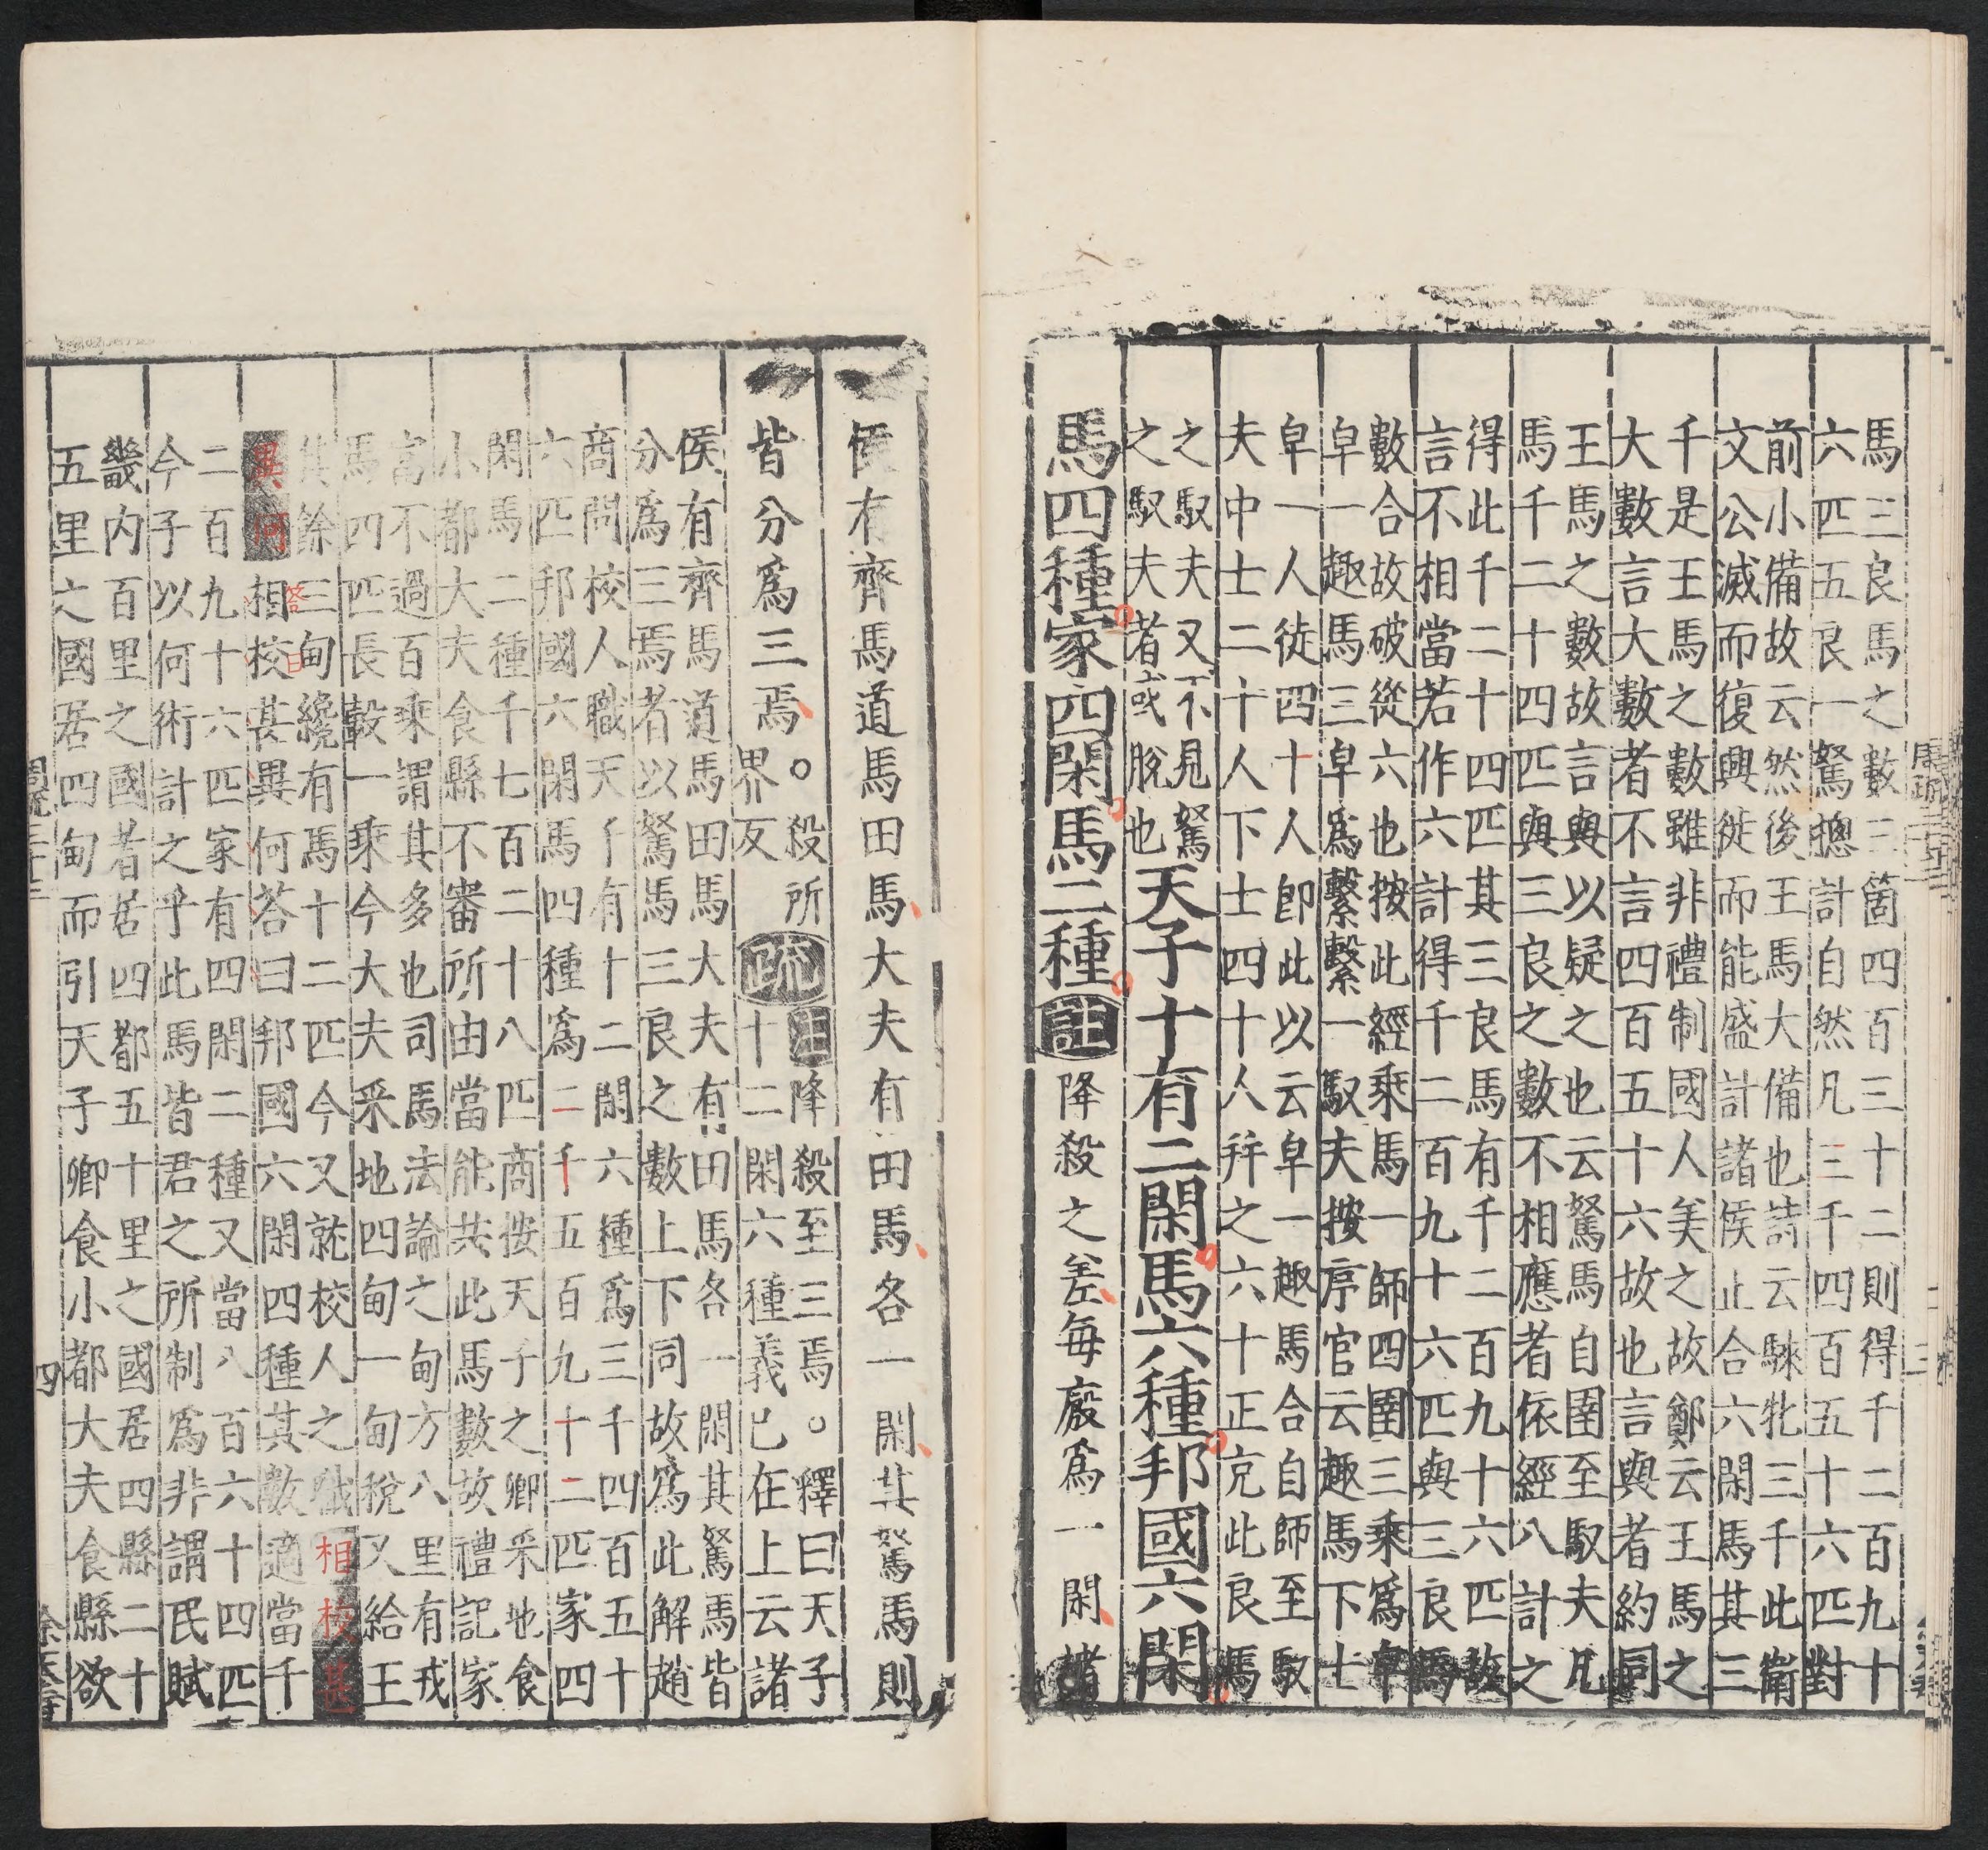 馬三良馬之數三箇四百三十二則得千二百九十
六匹五良一駑摠計自然凡三千四百五十六匹對
前小備故云然後王馬大備也詩云騋牝三千此衛
文公滅而復興徙而能盛計諸侯止合六閑馬其三
千是王馬之數雖非禮制國人美之故鄭云王馬之
大數言大數者不言四百五十六故也言與者約同
王馬之數故言與以疑之也云駑馬自圉至馭夫凡
馬千二十四匹與三良之數不相應者依經八計之
得此千二十四匹其三良馬有千二百九十六匹故
言不相當若作六計得千二百九十六匹與三良馬
數合故破從六也按此經乘馬一師四圉三乘爲皁
皁一趣馬三皁爲繫繫一馭夫按序官云趣馬下士
皁一人徒四十人即此以云皁一趣馬合自師至馭
夫中士二十人下士四十人并之六十正充此良馬
之馭夫又不見駑
之馭夫者或脫也
天子十有二閑馬六種邦國六閑
馬四種家四閑馬二種註降殺之差每廄爲一閑諸
侯有齊馬道馬田馬大夫有田馬各一閑其駑馬則
皆分爲三焉。殺所
界反
疏註降殺至三焉。釋曰天子
十二閑六種義已在上云諸
侯有齊馬道馬田馬大夫有田馬各一閑其駑馬皆
分爲三焉者以駑馬三良之數上下同故爲此解趙
商問校人職天子有十二閑六種爲三千四百五十
六匹邦國六閑馬四種爲二千五百九十二匹家四
閑馬二種千七百二十八匹商按天子之卿采地食
小都大夫食縣不審所由當能共此馬數故禮記家
富不過百乘謂其多也司馬法論之甸方八里有戎
馬四匹長轂一乘今大夫采地四甸一甸稅又給王
其餘三甸纔有馬十二匹今又就校人之職相校甚
異何相校甚異何荅曰邦國六閑四種其數適當千
答曰
二百九十六匹家有四閑二種又當八百六十四匹
今子以何術計之乎此馬皆君之所制爲非謂民賦
畿內百里之國者居四都五十里之國居四縣二十
五里之國居四甸而引天子卿食小都大夫食縣欲
四